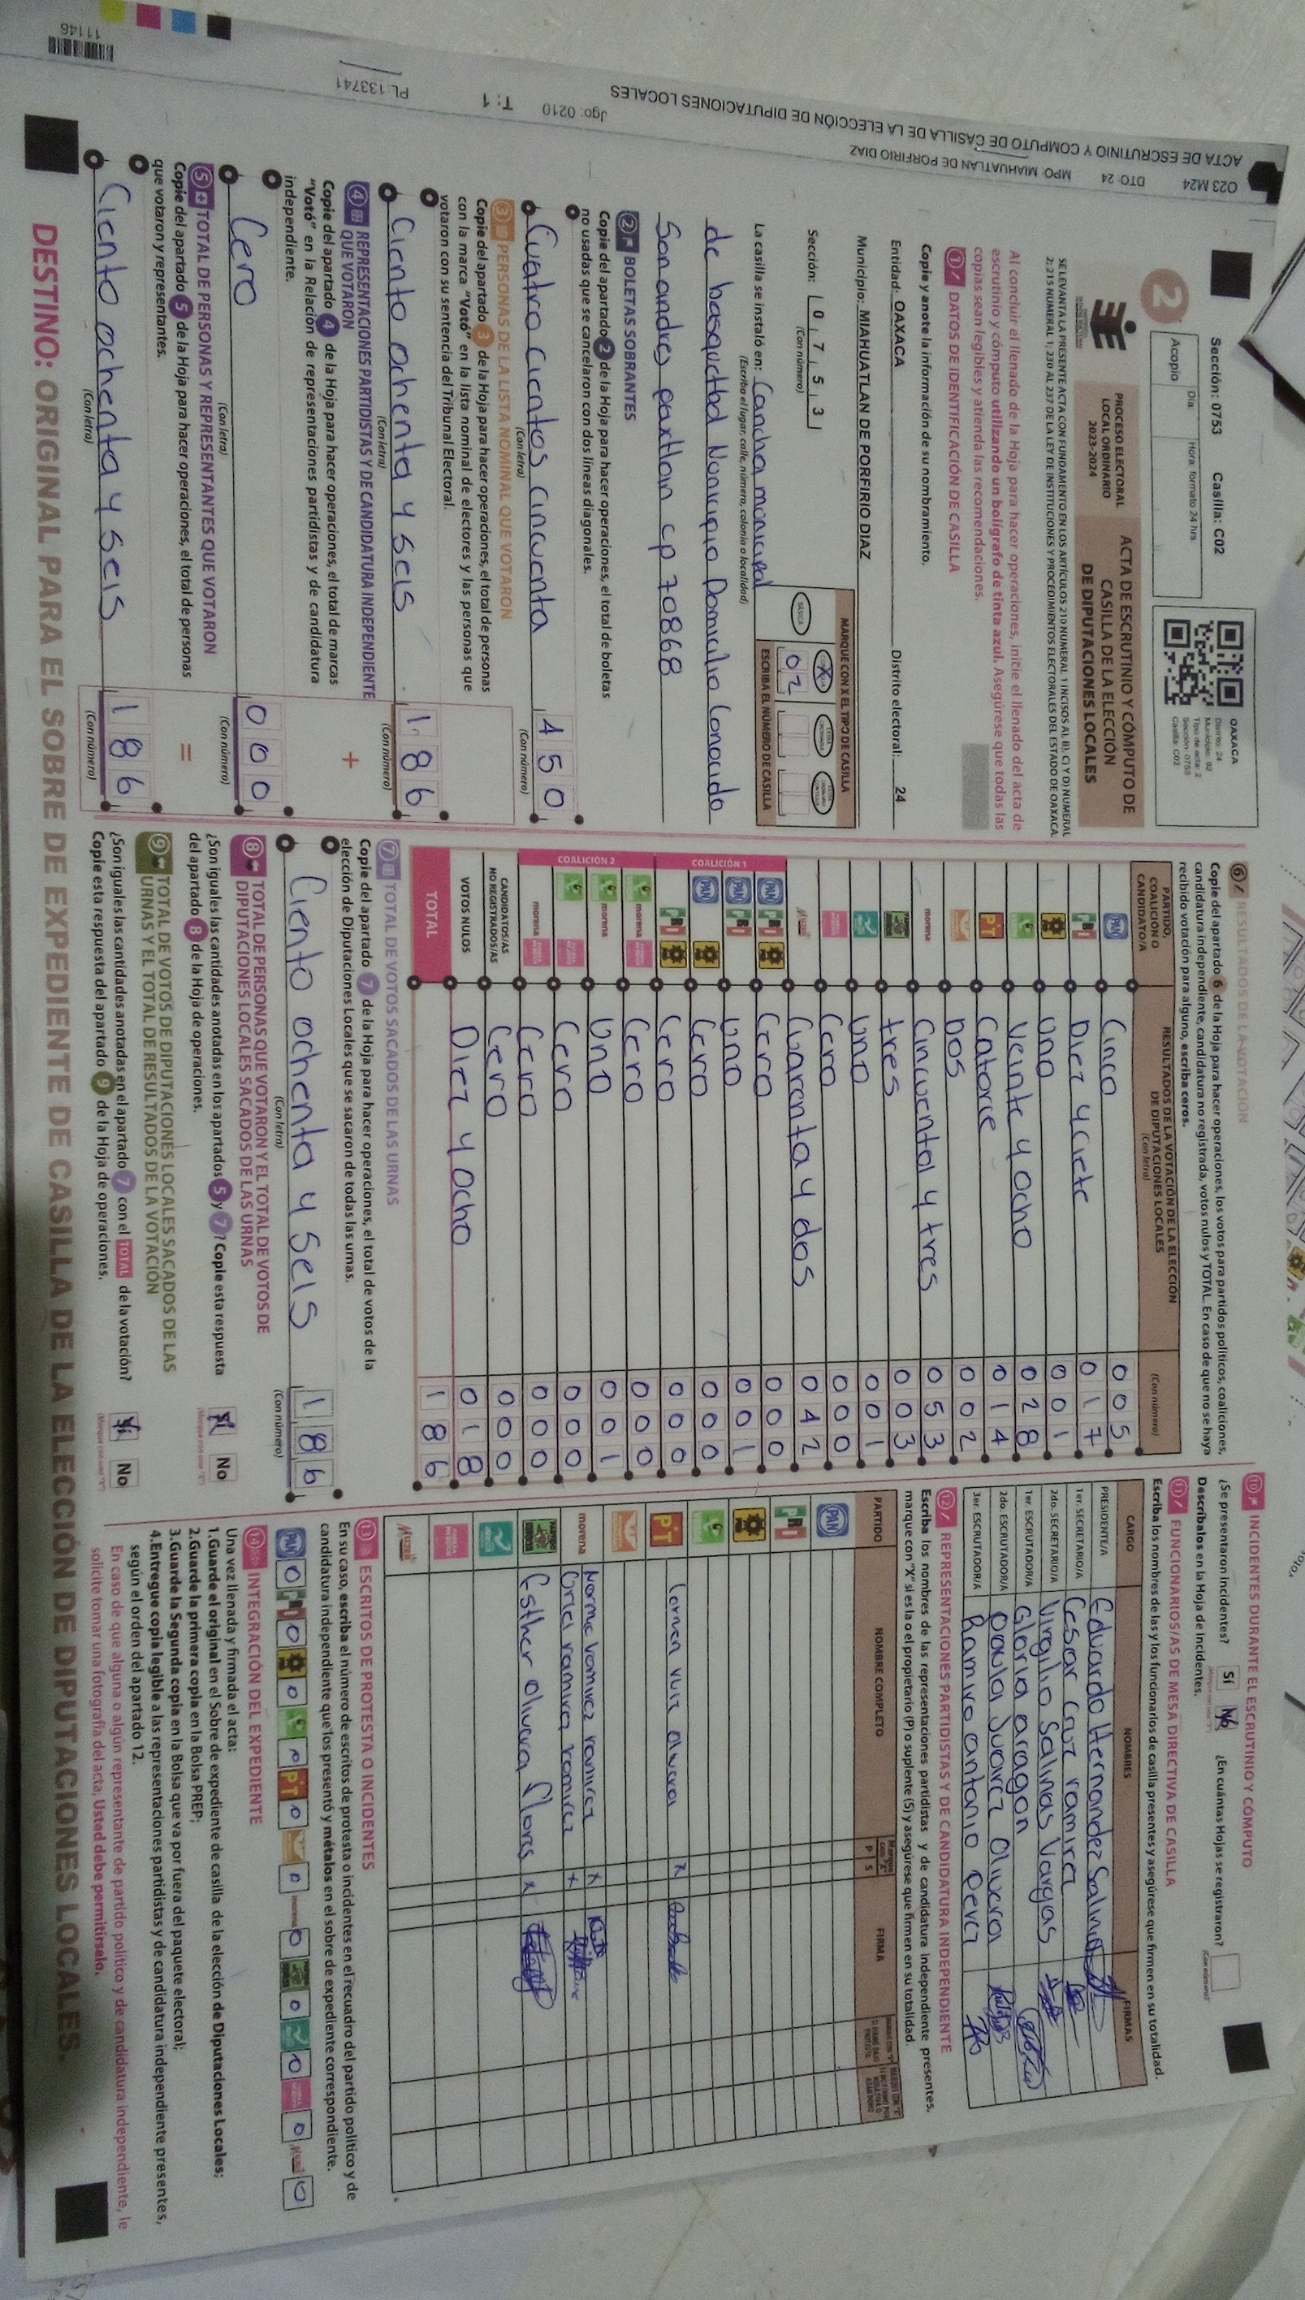 ACTA DE ESCRUTINIO Y COMPUTO DE CASILLA DE LA ELECCIÓN DE DIPUTACIONES LOCALES
O23 M24 DTO: 24 MPO: MIAHUATLAN DE PORFIRIO DIAZ
Jgo: 0210 T: 1 PL:133741
11146
Sección: 0753 Casilla: C02
2
Día: Hora: formato 24 hrs
Acopio
OAXACA
Distrito: 24
Municipio: 82
Tipo de acta: 2
Sección: 0753
Casilla: C02
PROCESO ELECTORAL
LOCAL ORDINARIO
2023-2024
ACTA DE ESCRUTINIO Y CÓMPUTO DE
CASILLA DE LA ELECCIÓN
DE DIPUTACIONES LOCALES
Al concluir el llenado de la Hoja para hacer operaciones, inicie el llenado del acta de
escrutinio y cómputo utilizando un bolígrafo de tinta azul. Asegúrese que todas las
copias sean legibles y atienda las recomendaciones.
1 DATOS DE IDENTIFICACIÓN DE CASILLA
Copie y anote la información de su nombramiento.
Entidad: OAXACA Distrito electoral: 24
Municipio: MIAHUATLAN DE PORFIRIO DIAZ
Sección: 0 7 5 3
(Con número)
MARQUE CON X EL TIPO DE CASILLA
X
02
ESCRIBA EL NÚMERO DE CASILLA
La casilla se instaló en: Cancha monicipal
(Escriba el lugar, calle, número, colonia o localidad)
de basquetbol Municipio Domicilio Conocido
San andres paxtlan cp 70868
2 BOLETAS SOBRANTES
Copie del apartado 2 de la Hoja para hacer operaciones, el total de boletas
no usadas que se cancelaron con dos líneas diagonales.
Cuatro cientos cincuenta 450
(Con letra) (Con número)
3 PERSONAS DE LA LISTA NOMINAL QUE VOTARON
Copie del apartado 3 de la Hoja para hacer operaciones, el total de personas
con la marca "Votó" en la lista nominal de electores y las personas que
votaron con su sentencia del Tribunal Electoral.
Ciento ochenta y seis 186
(Con letra) (Con número)
4 REPRESENTACIONES PARTIDISTAS Y DE CANDIDATURA INDEPENDIENTE
QUE VOTARON +
Copie del apartado 4 de la Hoja para hacer operaciones, el total de marcas
"Votó" en la Relación de representaciones partidistas y de candidatura
independiente.
Cero 000
(Con letra) (Con número)
5 TOTAL DE PERSONAS Y REPRESENTANTES QUE VOTARON =
Copie del apartado 5 de la Hoja para hacer operaciones, el total de personas
que votaron y representantes.
Ciento ochenta y seis 186
(Con letra) (Con número)
6 RESULTADOS DE LA VOTACIÓN
Copie del apartado 6 de la Hoja para hacer operaciones, los votos para partidos políticos, coaliciones,
candidatura independiente, candidatura no registrada, votos nulos y TOTAL. En caso de que no se haya
recibido votación para alguno, escriba ceros.
PARTIDO, COALICIÓN O CANDIDATO/A
RESULTADOS DE LA VOTACIÓN DE LA ELECCIÓN DE DIPUTACIONES LOCALES
(Con letra) (Con número)
PAN Cinco 005
PRI Diez y ciete 017
Uno 001
Veinte y ocho 028
PT Catorce 014
Dos 002
morena Cincuenta y tres 053
tres 003
Uno 001
Cero 000
Cuarenta y dos 042
COALICIÓN 1
PAN PRI Cero 000
PAN PRI Uno 001
PAN Cero 000
PRI Cero 000
COALICIÓN 2
morena Cero 000
morena Uno 001
Cero 000
morena Cero 000
CANDIDATOS/AS NO REGISTRADOS/AS Cero 000
VOTOS NULOS Diez y ocho 018
TOTAL 186
7 TOTAL DE VOTOS SACADOS DE LAS URNAS
Copie del apartado 7 de la Hoja para hacer operaciones, el total de votos de la
elección de Diputaciones Locales que se sacaron de todas las urnas.
Ciento ochenta y seis 186
(Con letra) (Con número)
8 TOTAL DE PERSONAS QUE VOTARON Y EL TOTAL DE VOTOS DE
DIPUTACIONES LOCALES SACADOS DE LAS URNAS
¿Son iguales las cantidades anotadas en los apartados 5 y 7? Copie esta respuesta
del apartado 8 de la Hoja de operaciones. Sí No
9 TOTAL DE VOTOS DE DIPUTACIONES LOCALES SACADOS DE LAS
URNAS Y EL TOTAL DE RESULTADOS DE LA VOTACIÓN
¿Son iguales las cantidades anotadas en el apartado 7 con el TOTAL de la votación?
Copie esta respuesta del apartado 9 de la Hoja de operaciones. Sí No
10 INCIDENTES DURANTE EL ESCRUTINIO Y CÓMPUTO
¿Se presentaron incidentes? Sí No ¿En cuántas Hojas se registraron?
Descríbalos en la Hoja de Incidentes.
11 FUNCIONARIOS/AS DE MESA DIRECTIVA DE CASILLA
Escriba los nombres de las y los funcionarios de casilla presentes y asegúrese que firmen en su totalidad.
CARGO NOMBRES FIRMAS
PRESIDENTE/A Eduardo Hernandez Salinas
1er. SECRETARIO/A Cesar Cruz ramirez
2do. SECRETARIO/A Virgilio Salinas Vargas
1er. ESCRUTADOR/A Gloria aragon
2do. ESCRUTADOR/A paula Juarez Olivera
3er. ESCRUTADOR/A Ramiro antonio Perez
12 REPRESENTACIONES PARTIDISTAS Y DE CANDIDATURA INDEPENDIENTE
Escriba los nombres de las representaciones partidistas y de candidatura independiente presentes,
marque con "X" si es la o el propietario (P) o suplente (S) y asegúrese que firmen en su totalidad.
PARTIDO NOMBRE COMPLETO P S FIRMA
PAN
PRI
PT Carmen ruiz x
morena Norma ramirez ramirez x
ramirez ramirez x
Esther olivera flores x
13 ESCRITOS DE PROTESTA O INCIDENTES
En su caso, escriba el número de escritos de protesta o incidentes en el recuadro del partido político y de
candidatura independiente que los presentó y métalos en el sobre de expediente correspondiente.
PAN 0 PRI 0 0 0 PT 0 0 morena 0 0 0 0 0
14 INTEGRACIÓN DEL EXPEDIENTE
Una vez llenada y firmada el acta:
1.Guarde el original en el Sobre de expediente de casilla de la elección de Diputaciones Locales;
2.Guarde la primera copia en la Bolsa PREP;
3.Guarde la Segunda copia en la Bolsa que va por fuera del paquete electoral;
4.Entregue copia legible a las representaciones partidistas y de candidatura independiente presentes,
según el orden del apartado 12.
En caso de que alguna o algún representante de partido político y de candidatura independiente, le
solicite tomar una fotografía del acta; Usted debe permitírselo.
DESTINO: ORIGINAL PARA EL SOBRE DE EXPEDIENTE DE CASILLA DE LA ELECCIÓN DE DIPUTACIONES LOCALES.